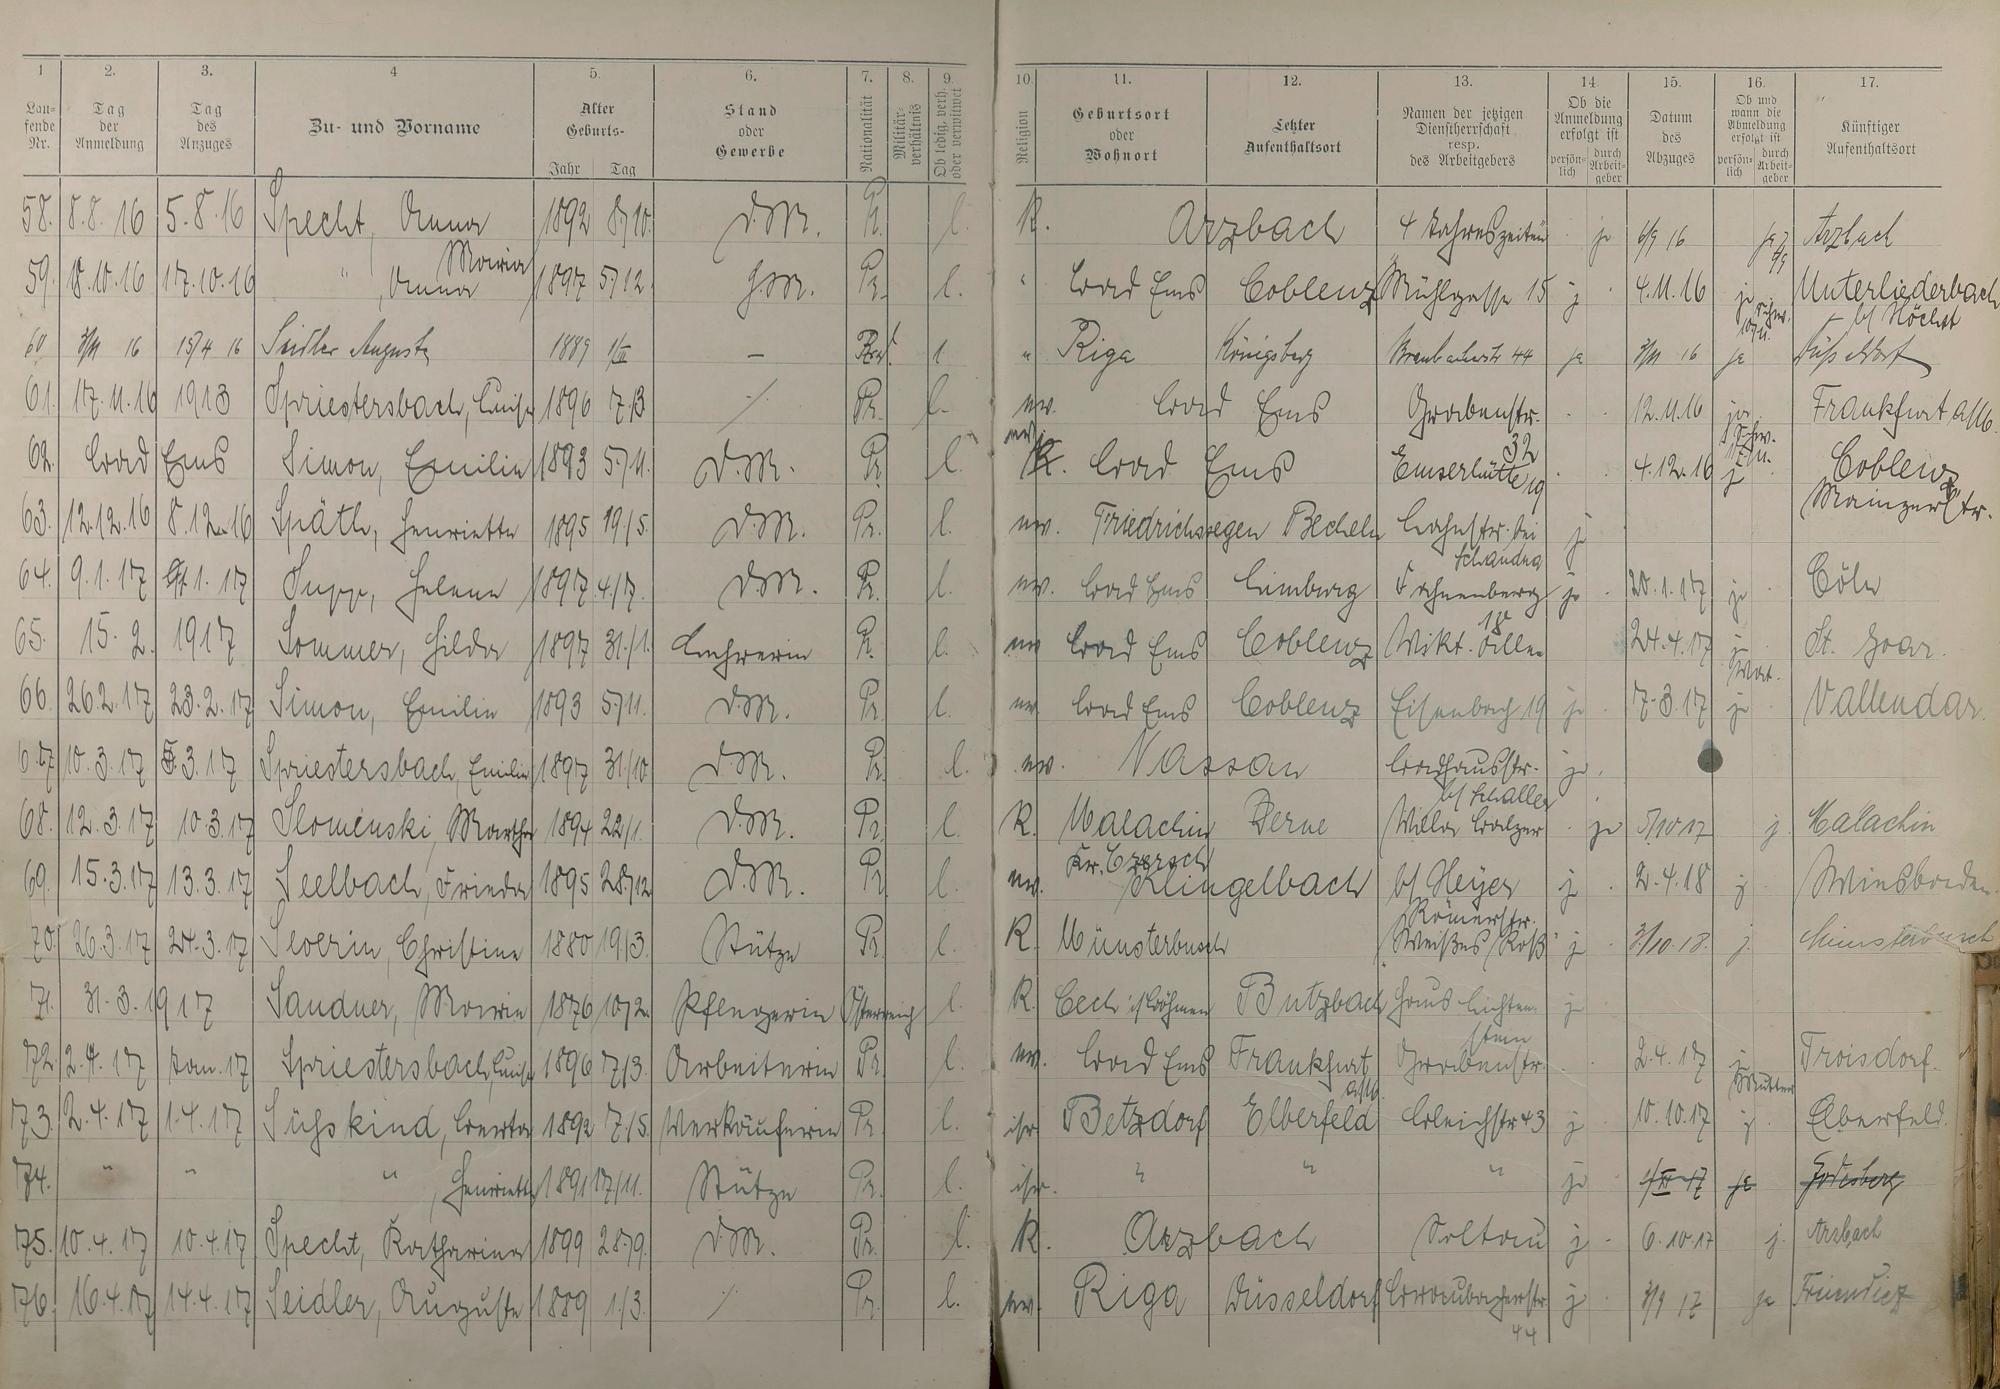 1 2. 3. 4 5. 6. 7. 8. 9. 10. 11. 12. 13. 14. 15. 16. 17.
Lau-fende Nr. Tag der Anmeldung Tag des Anzuges Zu- und Vorname Alter Geburts- Jahr Tag Stand oder Gewerbe Nationalität Militär-verhältnis Ob ledig, verh. oder verwitwet Religion Geburtsort oder Wohnort Letzter Aufenthaltsort Namen der jetzigen Dienstherrschaft resp. des Arbeitgebers Ob die Anmeldung erfolgt ist persön-lich durch Arbeit-geber Datum des Abzuges Ob und wann die Abmeldung erfolgt ist persön-lich durch Arbeit-geber Künftiger Aufenthaltsort
58. 8.8.16 5.8.16 Specht, Anna 1892 8/10. D.M. Pr. l. K. Arzbach 4 Jahreszeiten ja 6/9 16 Arzbach
59. 18.10.16 17.10.16 " , Anna Maria 1897 5/12. Pr. l. " Bad Ems Coblenz Mühlgasse 15 j 4.11.16 Unterliederbach b/ Höchst
60 16 15/4 16 Seidler Auguste 1889 1/III — l " Riga Königsberg 44 ja 16 ja Düsseldorf
61. 17.11.16 1913 Spriestersbach, Luise 1896 7/3 ⁒ Pr. l. ev. Bad Ems Grabenstr. 32 12.11.16 Frankfurt a/M.
62. Bad Ems Simon, Emilie 1893 5/11. D.M. Pr. l. ev. Bad Ems Emserhütte 19 4.12.16 j Coblenz Mainzerstr.
63. 12.12.16 8.12.16 Späth, Henriette 1895 19/5. D.M. Pr. l. ev. Friedrichssegen Becheln Lahnstr. bei j
64. 9.1.17 1.17 Supp, Helene 1897 4/7. D.M. Pr. l. ev. Bad Ems Limburg j 20.1.17 j Cöln
65. 15.2. 1917 Sommer, Hilda 1897 31/1. Lehrerin Pr. l. ev Bad Ems Coblenz Wikt. Allee 18 24.4.17 St. Goar.
66. 26.2.17 23.2.17 Simon, Emilie 1893 5/11. D.M. Pr. l. ev Bad Ems Coblenz Eisenbach 19 j 7.3.17 j Vallendar.
67 10.3.17 3.17 Spriestersbach, Emilie 1897 31/10 D.M. Pr. l. ev. Nassau Badhausstr. b/ Schaller j
68. 12.3.17 10.3.17 Slomenski, Martha 1894 22/1. D.M. Pr. l. K. Malachin Kr. Berne Villa Balzer j 5/10 17 j. Malachin
69. 15.3.17 13.3.17 Seelbach, Frieda 1895 28/12 D.M. Pr l. ev. Klingelbach b/ Heyer Römerstr. j 2.4.18 j
70. 26.3.17 24.3.17 Severin, Christine 1880 19/3. Stütze Pr. l. K. Münsterbusch "Weißes Roß" j 3/10.18. j. Münsterbusch
71. 31.3.1917 Sandner, Marie 1876 10/2. Pflegerin Österreich l. K. Cech i/ Böhmen Butzbach Haus Lichtenstein j
72. 2.4.17 Jan. 17 Spriestersbach, Luise 1896 7/3. Arbeiterin Pr. l. ev. Bad Ems Frankfurt a/M. Grabenstr. 2.4.17 j Mutter Troisdorf.
73. 2.4.17 1.4.17 Süßkind, Berta 1892 7/5. Verkäuferin Pr. l. isr Betzdorf Elberfeld Bleichstr 43 j 10.10.17 j. Elberfeld.
74. " " " , Henriette 1891 17/11. Stütze Pr. l. isr. " " " j 17 ja Godesberg
75. 10.4.17 10.4.17 Specht, Katharina 1899 28/9. D.M. Pr. l. K. Arzbach Soltau j 6.10.17 j. Arzbach
76. 16.4.17 14.4.17 Seidler, Auguste 1889 1./3. ⁒ Pr. l. ev. Riga Düsseldorf Braubacherstr. 44 j 17 ja